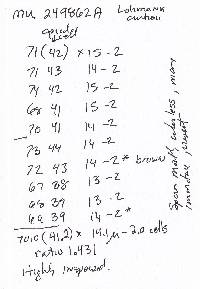 MU 249862A Lohmann
71 (42) x 15 - 2
71 43 14 - 2
74 42 15 - 2
68 41 15 - 2
70 41 14 - 2
73 44 14 - 2
72 43 14 - 2 * brown
67 38 13 - 2
68 39 13 - 2
69 39 14 - 2 *
70.0 (41.2) x 14.1 µ - 2.0 cells
ratio 1.431
Highly
Specm mold, colorless, many
immature, present